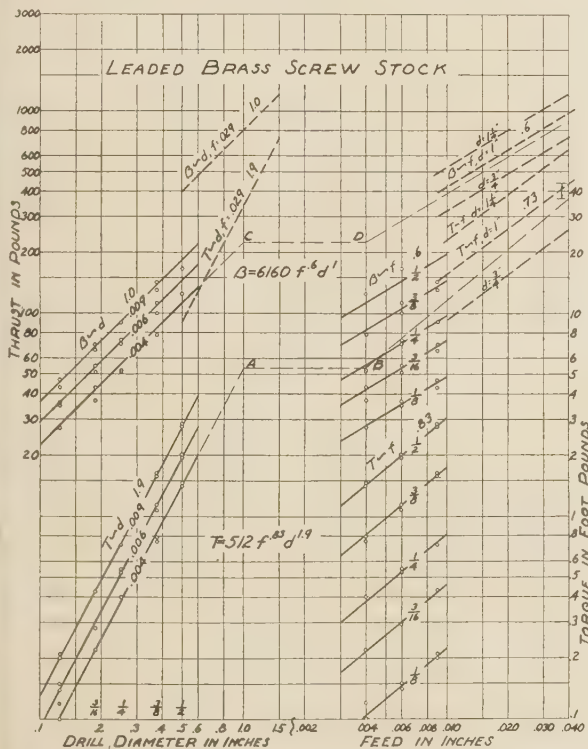 LEADED BRASS SCREW STOCK
3000
2000
1000
800
600
500
400
300
200
100
80
60
50
40
30
20
THRUST IN POUNDS
B~d, f=.029 1.0
T~d, f=.029 1.9
B~d 1.0
.009
.006
.004
T~d 1.9
.009
.006
.004
C
D
A
B
B=6160 f^.6 d^1
T=512 f^.83 d^1.9
d=1 1/4"
B~f, d=1" .6
d=3/4"
T~f, d=1 1/4"
T~f, d=1" .73
d=3/4"
B~f .6
1/2
3/8
1/4
3/16
1/8
T~f .83
1/2
3/8
1/4
3/16
1/8
40
20
10
8
6
5
4
3
2
1
.8
.6
.5
.4
.3
.2
.1
TORQUE IN FOOT POUNDS
3/16 1/4 3/8 1/2
.1 .2 .3 .4 .5 .6 .8 1.0 1.5 .002 .004 .006 .008 .010 .020 .030 .040
DRILL DIAMETER IN INCHES
FEED IN INCHES